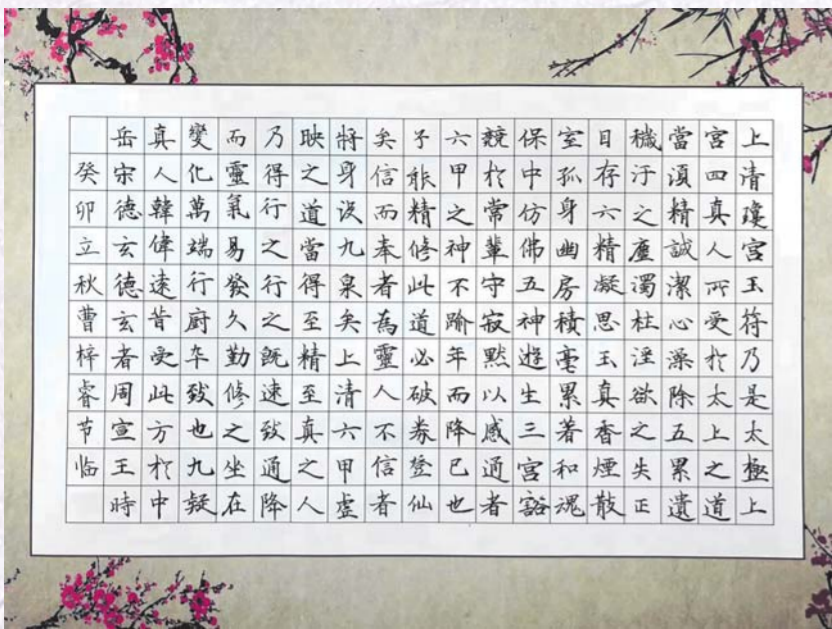 上清瓊宮玉符乃是太極上
宮四真人所受於太上之道
當湏精誠潔心澡除五累遺
穢汙之塵濁杜淫欲之失正
目存六精凝思玉真香煙散
室孤身幽房積毫累著和魂
保中仿佛五神遊生三宮豁
競於常輩守寂默以感通者
六甲之神不踰年而降已也
子能精修此道必破券登仙
矣信而奉者為靈人不信者
將身沒九泉矣上清六甲虛
映之道當得至精至真之人
乃得行之行之既速致通降
而靈氣易發久勤修之坐在
變化萬端行廚卒致也九疑
真人韓偉遠昔受此方於中
岳宋德玄德玄者周宣王時
癸卯立秋曹梓睿节临